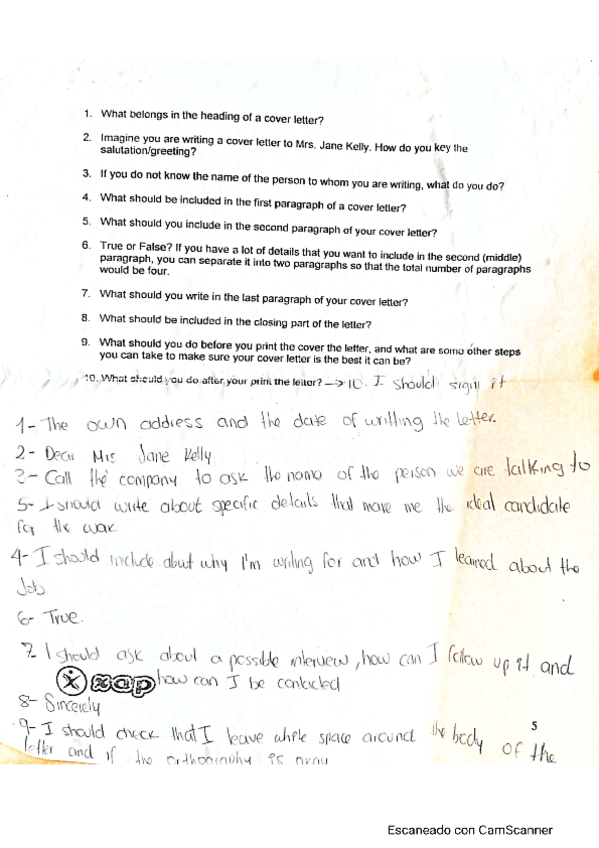 1. What belongs in the heading of a cover letter?
2. Imagine you are writing a cover letter to Mrs. Jane Kelly. How do you key the
salutation/greeting?
3. If you do not know the name of the person to whom you are writing, what do you do?
4. What should be included in the first paragraph of a cover letter?
5. What should you include in the second paragraph of your cover letter?
6. True or False? If you have a lot of details that you want to include in the second (middle)
paragraph, you can separate it into two paragraphs so that the total number of paragraphs
would be four.
7. What should you write in the last paragraph of your cover letter?
8. What should be included in the closing part of the letter?
9. What should you do before you print the cover the letter, and what are some other steps
you can take to make sure your cover letter is the best it can be?
10. What should you do after your print the letter? → 10. I should sign it
1- The own address and the date of writting the letter.
2- Dear Mrs Jane Kelly
3- Call the company to ask the name of the person we are talking to
5- I should write about specific details that make me the ideal candidate
for the work
4- I should include about why I'm writing for and how I learned about the
Job.
6- True.
7. I should ask about a possible interview, how can I follow up it and
xap how can I be contacted
8- Sincerely
9- I should check that I leave white space around the body of the
letter and if the orthography is okay
5
Escaneado con CamScanner